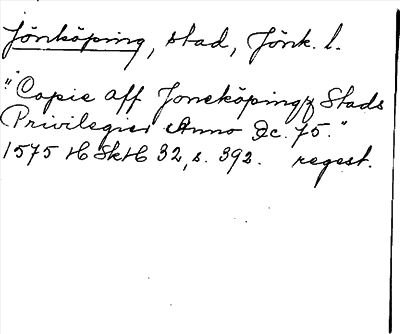 Jönköping, stad, Jönk. l.
"Copie aff Joneköpingz Stads
Privilegier Anno Dc. 75."
1575 HSkH 32, s. 392. regest.